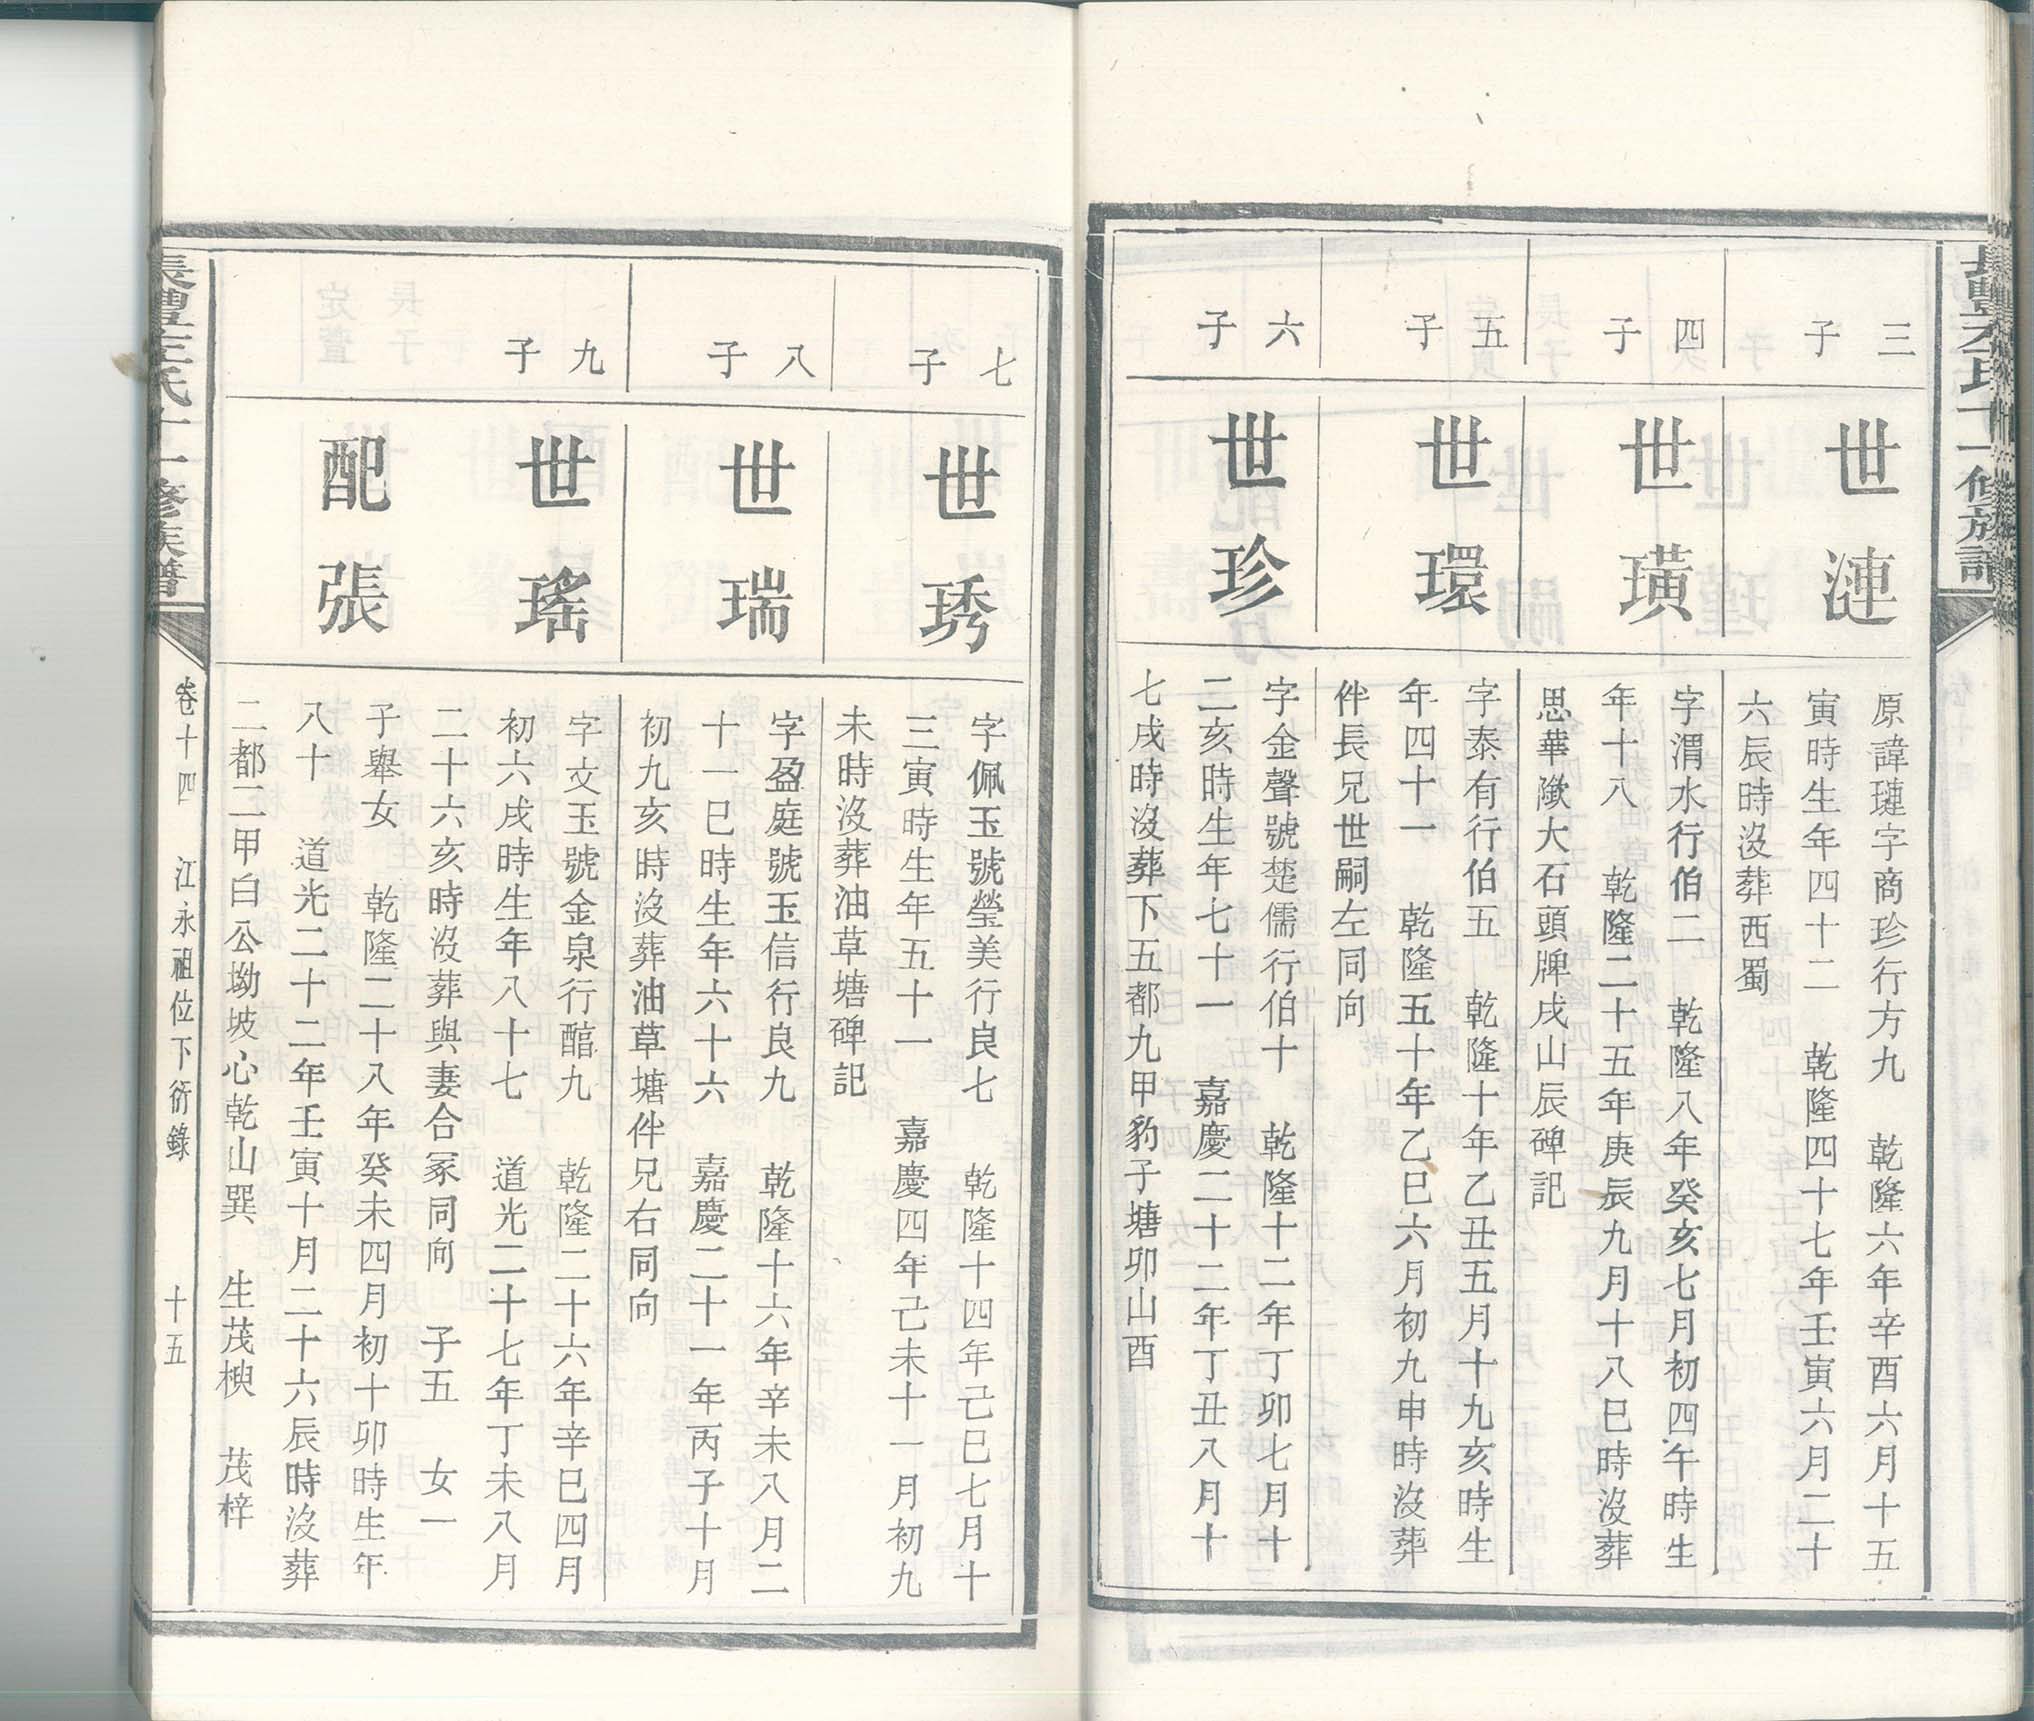 三子
世漣
原諱璉字商珍行方九　乾隆六年辛酉六月十五
寅時生年四十二　乾隆四十七年壬寅六月二十
六辰時沒葬西蜀
四子
世璜
字渭水行伯二　乾隆八年癸亥七月初四午時生
年十八　乾隆二十五年庚辰九月十八巳時沒葬
思華墩大石頭牌戌山辰碑記
五子
世環
字泰有行伯五　乾隆十年乙丑五月十九亥時生
年四十一　乾隆五十年乙巳六月初九申時沒葬
伴長兄世嗣左同向
六子
世珍
字金聲號楚儒行伯十　乾隆十二年丁卯七月十
二亥時生年七十一　嘉慶二十二年丁丑八月十
七戌時沒葬下五都九甲豹子塘卯山酉
七子
世琇
字佩玉號瑩美行良七　乾隆十四年己巳七月十
三寅時生年五十一　嘉慶四年己未十一月初九
未時沒葬油草塘碑記
八子
世瑞
字盈庭號玉信行良九　乾隆十六年辛未八月二
十一巳時生年六十六　嘉慶二十一年丙子十月
初九亥時沒葬油草塘伴兄右同向
九子
世瑤
字文玉號金泉行醕九　乾隆二十六年辛巳四月
初六戌時生年八十七　道光二十七年丁未八月
二十六亥時沒葬與妻合冢同向　子五　女一
配張
子舉女　乾隆二十八年癸未四月初十卯時生年
八十　道光二十二年壬寅十月二十六辰時沒葬
二都二甲白公坳坡心乾山巽　生茂楰　茂梓
氏十一修族譜
卷十四　江永祖位下衍錄　十五